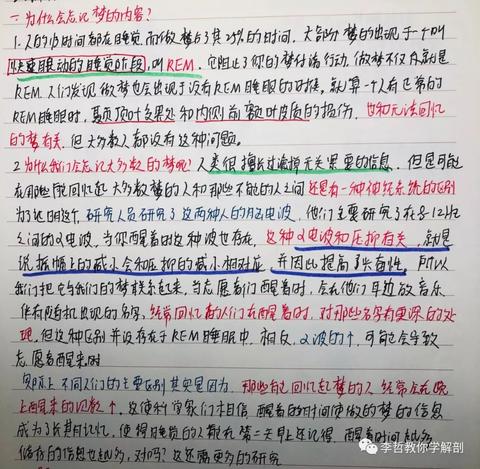 一 为什么会忘记梦的内容?
1. 人的1/3时间都在睡觉 而做梦占了其25%的时间, 大部分梦的出现于一个叫
快速眼动的睡觉阶段, 叫REM. 它阻止了你的梦付诸行动. 做梦不仅仅就是
REM 人们发现做梦也会出现于没有REM睡眠的时候, 就算一个人有正常的
REM睡眠时, 颞顶顶叶交界处和内侧前额叶皮质的损伤, 也和无法回忆
的梦有关, 但大多数人都没有这种问题.
2. 为什么我们会忘记大多数的梦呢? 人类很擅长过滤掉无关紧要的信息, 但是可能
在那些能回忆起大多数梦的人和那些不能的人之间 还是有一种神经系统的区别
为了证明这个, 研究人员研究了这两种人的脑电波, 他们主要研究了在8-12Hz
之间的α电波, 当你醒着时这种波也存在, 这种α电波和压抑有关, 就是
说振幅上的减小会和压抑的减小相对应, 并因此提高了兴奋性, 所以
我们把它与我们的梦联系起来, 当志愿者们醒着时, 会在他们耳边放音乐
伴有随机出现的名字, 经常回忆者的人们在醒着时, 对那些名字有更深的处
理, 但这种区别并没存在于REM睡眠中, 相反, α波的↑, 可能会导致
志愿者醒来时
实际上不同人们的主要区别其实是因为, 那些能回忆起梦的人 经常会在晚
上醒来的次数↑, 这使科学家们相信, 醒着的时间使做的梦的信息
成为了长期记忆, 使得睡觉的人能在第二天早上还记得, 醒着时间越多
储存的信息也越多, 对吗? 这还需更多的研究
李哲教你学解剖